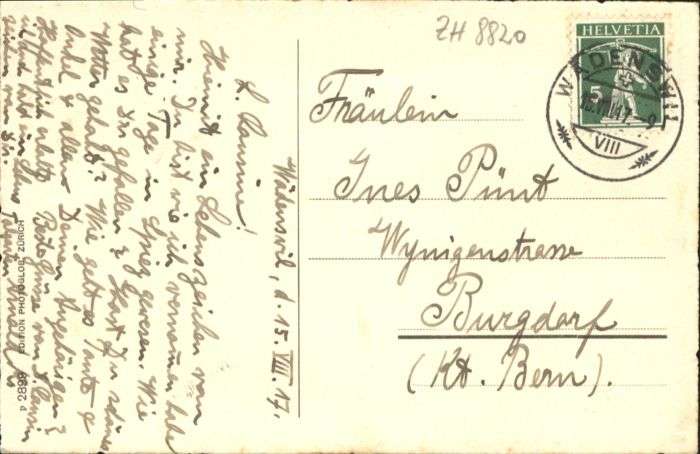 ZH 8820
HELVETIA
5
WÄDENSWIL
VIII
Fräulein
Ines Pünt
Wynigenstrasse
Burgdorf
(Kt. Bern).
Wädenswil, d. 15. VIII. 17.
L. Cousine!
Hiemit ein Lebenszeichen von
mir. Du bist wie ich vernommen habe
einige Tage in Spiez gewesen. Wie
hat es Dir gefallen & hast Du schönes
Wetter gehabt? Wie geht es Tante &
Onkel & allen Deinen Angehörigen?
Hoffentlich recht Beste Grüsse von D. Cousin
EDITION PHOTOGLOB, ZÜRICH
P 2899